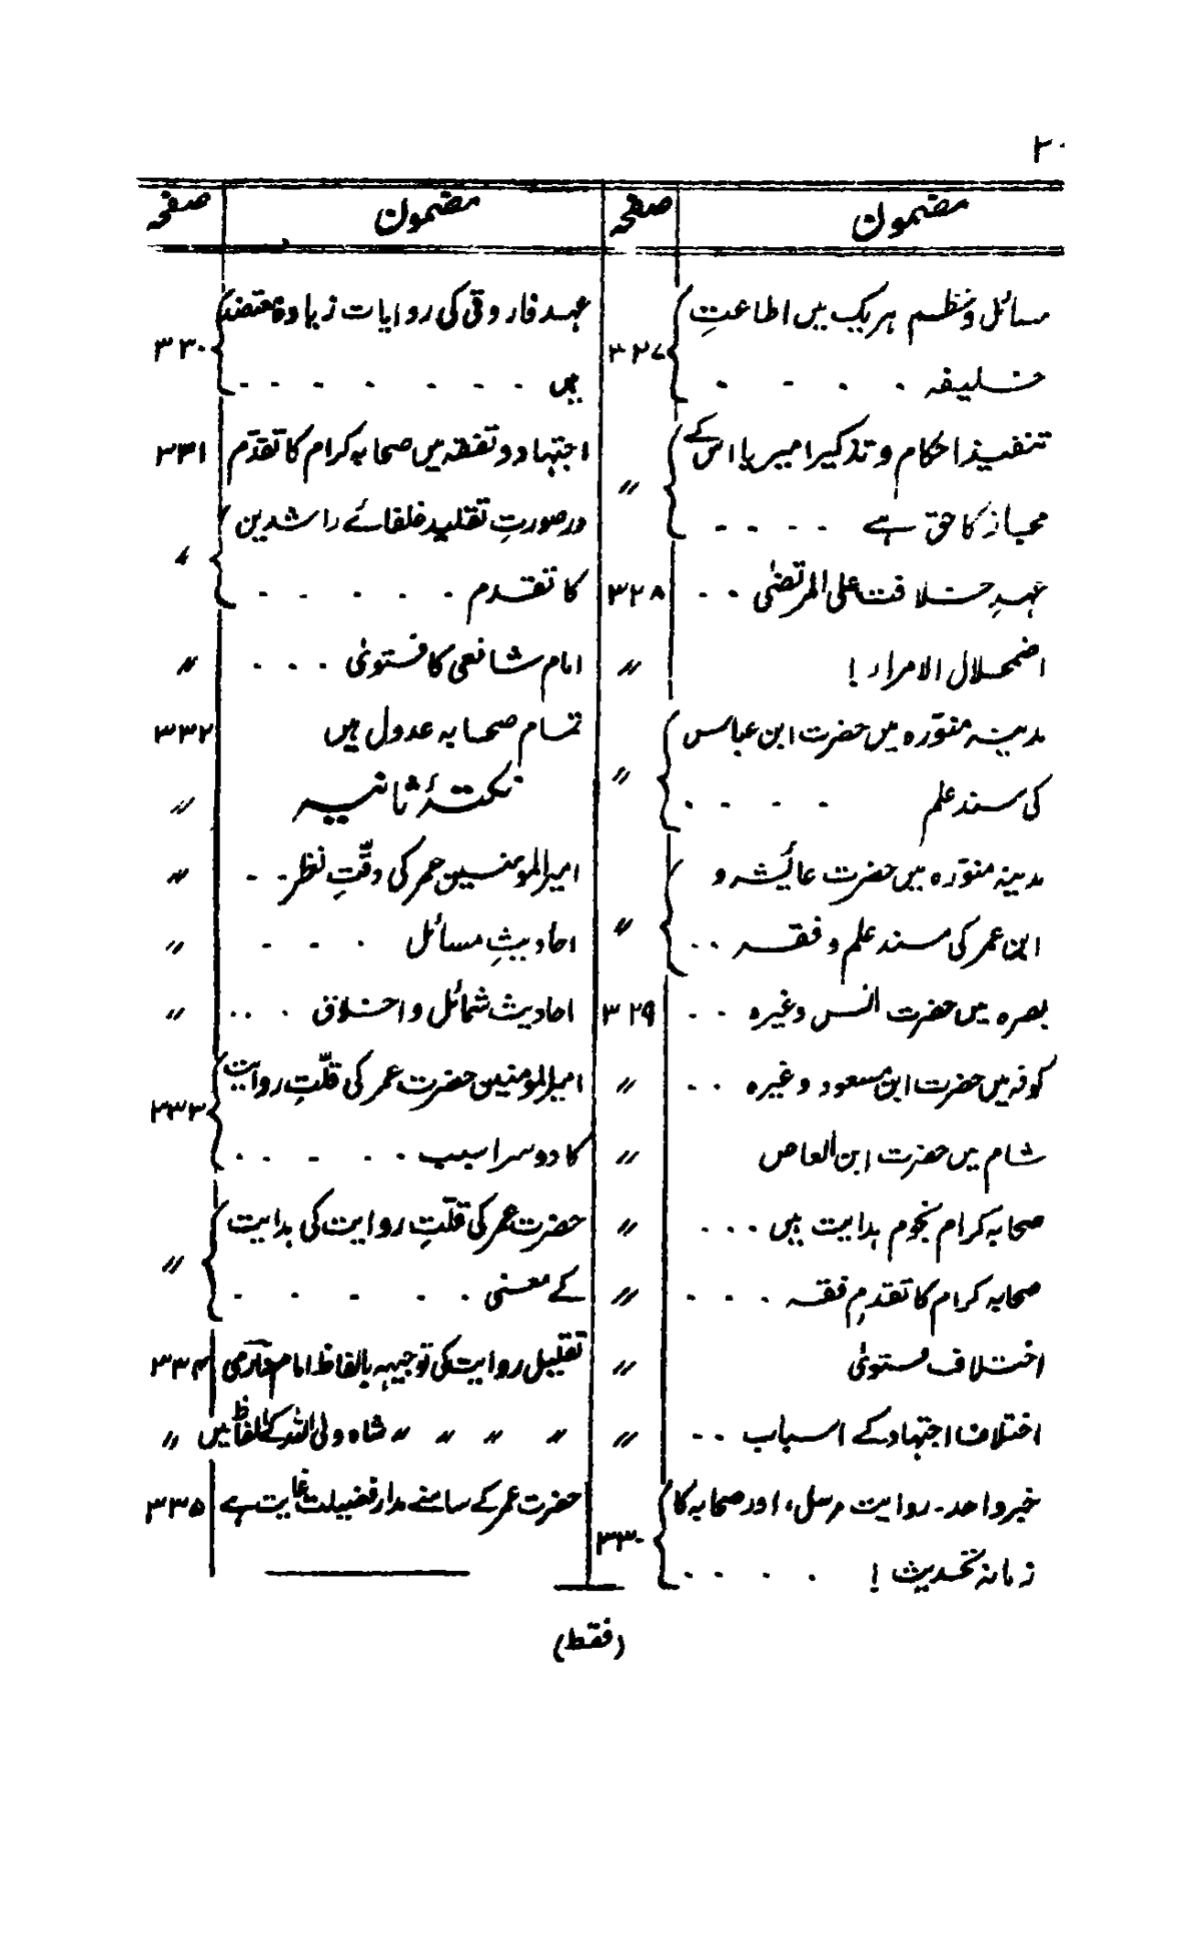 ۳۰
مضمون صفحہ
مسائل و نظم ہر یک میں اطاعتِ
خلیفہ . . - - . ۳۲۷
تنفیذ احکام و تذکیر امیر یا اس کے
مجاز کا حق ہے - - - - 〃
عہدِ خلافت علی المرتضیٰ . . ۳۲۸
اضمحلال الامراء ! 〃
مدینہ منوّرہ میں حضرت ابن عباس
کی سند علم - - - . 〃
مدینہ منوّرہ میں حضرت عائشہ و
ابن عمر کی مسند علم و فقہ . . 〃
بصرہ میں حضرت انس وغیرہ . . ۳۲۹
کوفہ میں حضرت ابن مسعود وغیرہ . . 〃
شام میں حضرت ابن العاص 〃
صحابہ کرام نجوم ہدایت ہیں . . . 〃
صحابہ کرام کا تقدمِ فقہ . . . . 〃
اختلاف فتویٰ 〃
اختلاف اجتہاد کے اسباب . . 〃
خبر واحد - روایت مرسل، اور صحابہ کا
زمانہ تحدیث ! . . . . ۳۳۰
مضمون صفحہ
عہد فاروقی کی روایات زیادہ معتمد
ہیں . - - . - - - ۳۳۰
اجتہاد و تفقہ میں صحابہ کرام کا تقدّم ۳۳۱
در صورتِ تقلید خلفائے راشدین
کا تقدم . . . . . 〃
امام شافعی کا فتویٰ . . . 〃
تمام صحابہ عدول ہیں ۳۳۲
نکتۂ ثانیہ 〃
امیر المومنین عمر کی دقّتِ نظر . . 〃
احادیثِ مسائل . - - 〃
احادیث شمائل و اخلاق . . . 〃
امیر المومنین حضرت عمر کی قلّتِ روایت
کا دوسرا سبب . . . - . . ۳۳۳
حضرت عمر کی قلّتِ روایت کی ہدایت
کے معنی . . . - - - 〃
تقلیل روایت کی توجیہہ بالفاظ امام دارمی ۳۳۴
〃 〃 〃 〃 شاہ ولی اللہ کے الفاظ میں 〃
حضرت عمر کے سامنے مدار فضیلت غایت ہے ۳۳۵
(فقط)